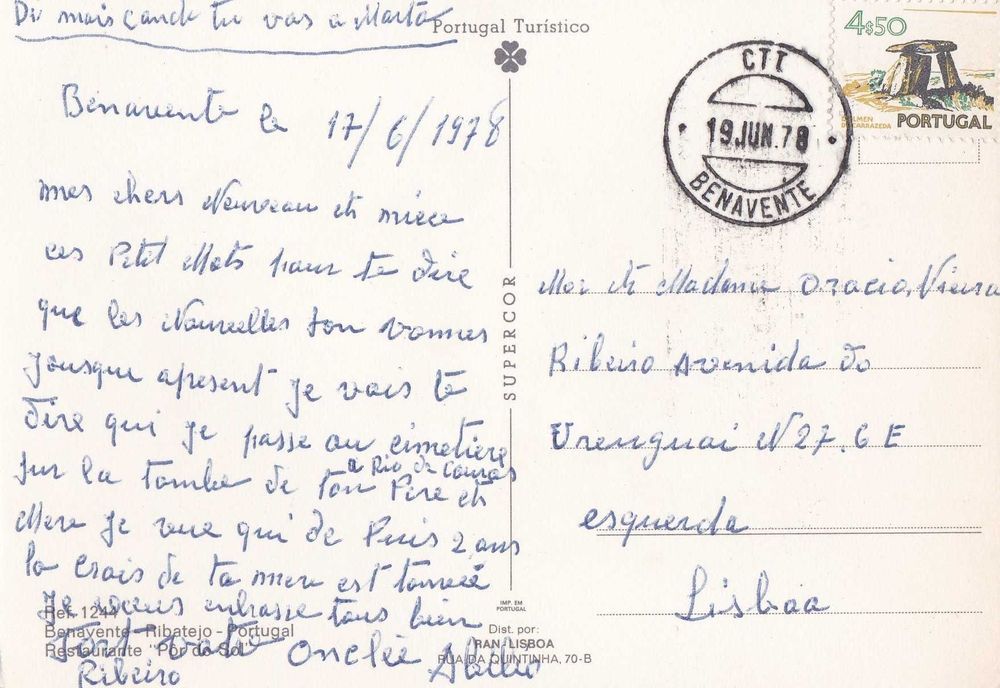 Di mais cande tu vas a Marta
Portugal Turístico
4$50
DOLMEN
DE CARRAZEDA
PORTUGAL
CTT
19.JUN.78
BENAVENTE
Benavente le 17/6/1978
mes chers Neuveau et mièce
ces Petit Mots pour te dire
que les Nouvelles son vonnes
jousque apresent je vais te
dire qui je passe au cimetiere
a Rio de Couros
sur la tombe de ton Pere et
Mere je vue qui de Puis 2 ans
la Crois de ta mere est tomvée
je vous enbrasse tous bien
fort votre Onclée
Ribeiro
SUPERCOR
Mor et Madame Oracio Vieira
Ribeiro Avenida do
Urenguai N 27. 6 E
esquerda
Lisboa
Ref. 1244
Benavente - Ribatejo - Portugal
Restaurante "Pôr do Sol"
IMP. EM
PORTUGAL
Dist. por:
RAN-LISBOA
RUA DA QUINTINHA, 70-B